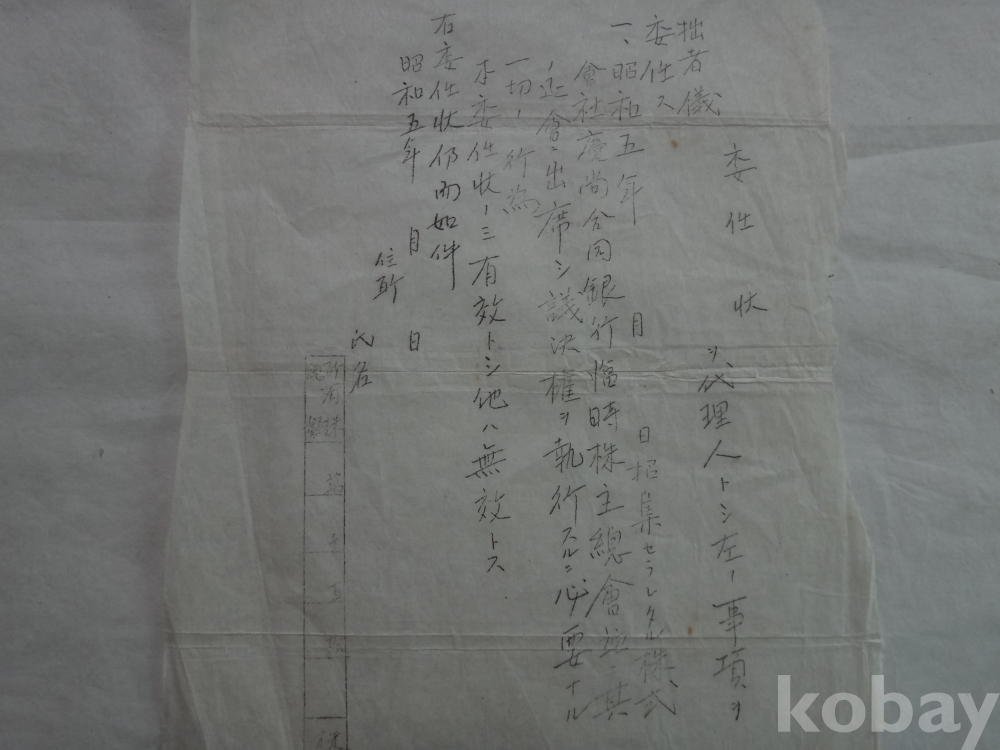 委任状
拙者儀　ヲ代理人トシ左ノ事項ヲ
委任ス
一、昭和五年　月　日招集セラレタル株式
會社慶尚合同銀行臨時株主總會並ニ其
ノ延會ニ出席シ議決權ヲ執行スルニ必要ナル
一切ノ行為
本委任状ノミ有效トシ他ハ無效トス
右委任状仍而如件
昭和五年　月　日
住所
氏名
所有株
kobay